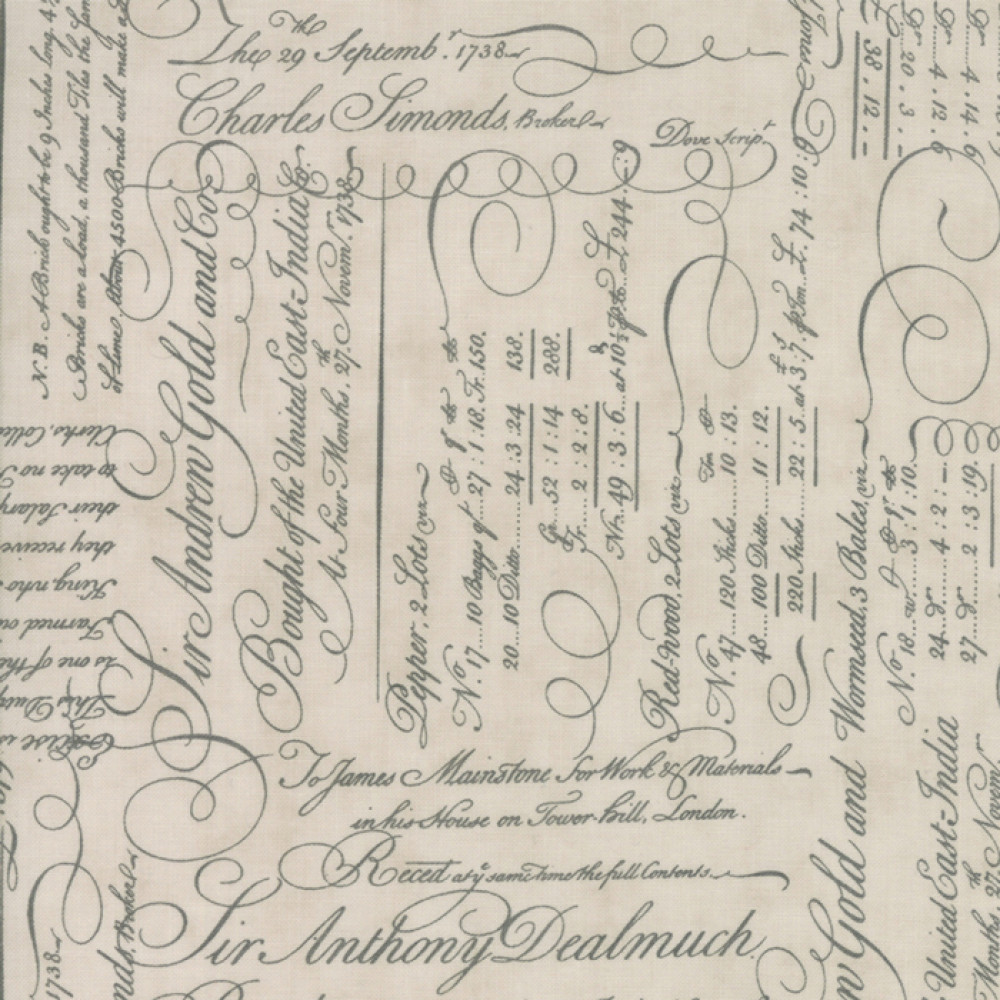 The 29th Septembr. 1738
Charles Simonds, Broker
Dove Script
N.B. A Brick ought to be 9 Inches long, 4
Bricks are a load, a thousand Tiles the
of Lime. About 4500 Bricks will make a
Sir Andrew Gold and Co
Bought of the United East-India Co
At Four Months, 27th Novem. 1738
Pepper, 2 Lots viz
No. 17....10 Bags qt....27 : 1 : 18. Tr. 150.
20....10 Ditto....24 : 3 : 24 138.
Gr. 52 : 1 : 14 288.
Tr. 2 : 2 : 8.
Nt. 49 : 3 : 6....at 10
£ 244 : - : 9
Red-wood, 2 Lots viz
No. 47....120 Sticks....10 : 13.
48....100 Ditto....11 : 12.
220 Sticks....22 : 5. at £3 : 7s. p Ton....£. 74 : 10 : 9
Wormseed, 3 Bales, viz
No. 18....3 : 1 : 10.
24....4 : 2 : -
27....2 : 3 : 19.
£ 38 . 12 . -
Tr. 20 . 3 . -
Tr. 4 . 12 . 6
Tr. 4 . 14 . 6
Clerks,
to take no
their Salary
they receive
King who
Farmed out
is one of the
This Duty
To James Mainstone For Work & Materials
in his House on Tower-hill, London.
Reced at ye same time the full Contents.
Sir Anthony Dealmuch.
Gold and
United East-India
Months, 27th Novem.
Broker
1738